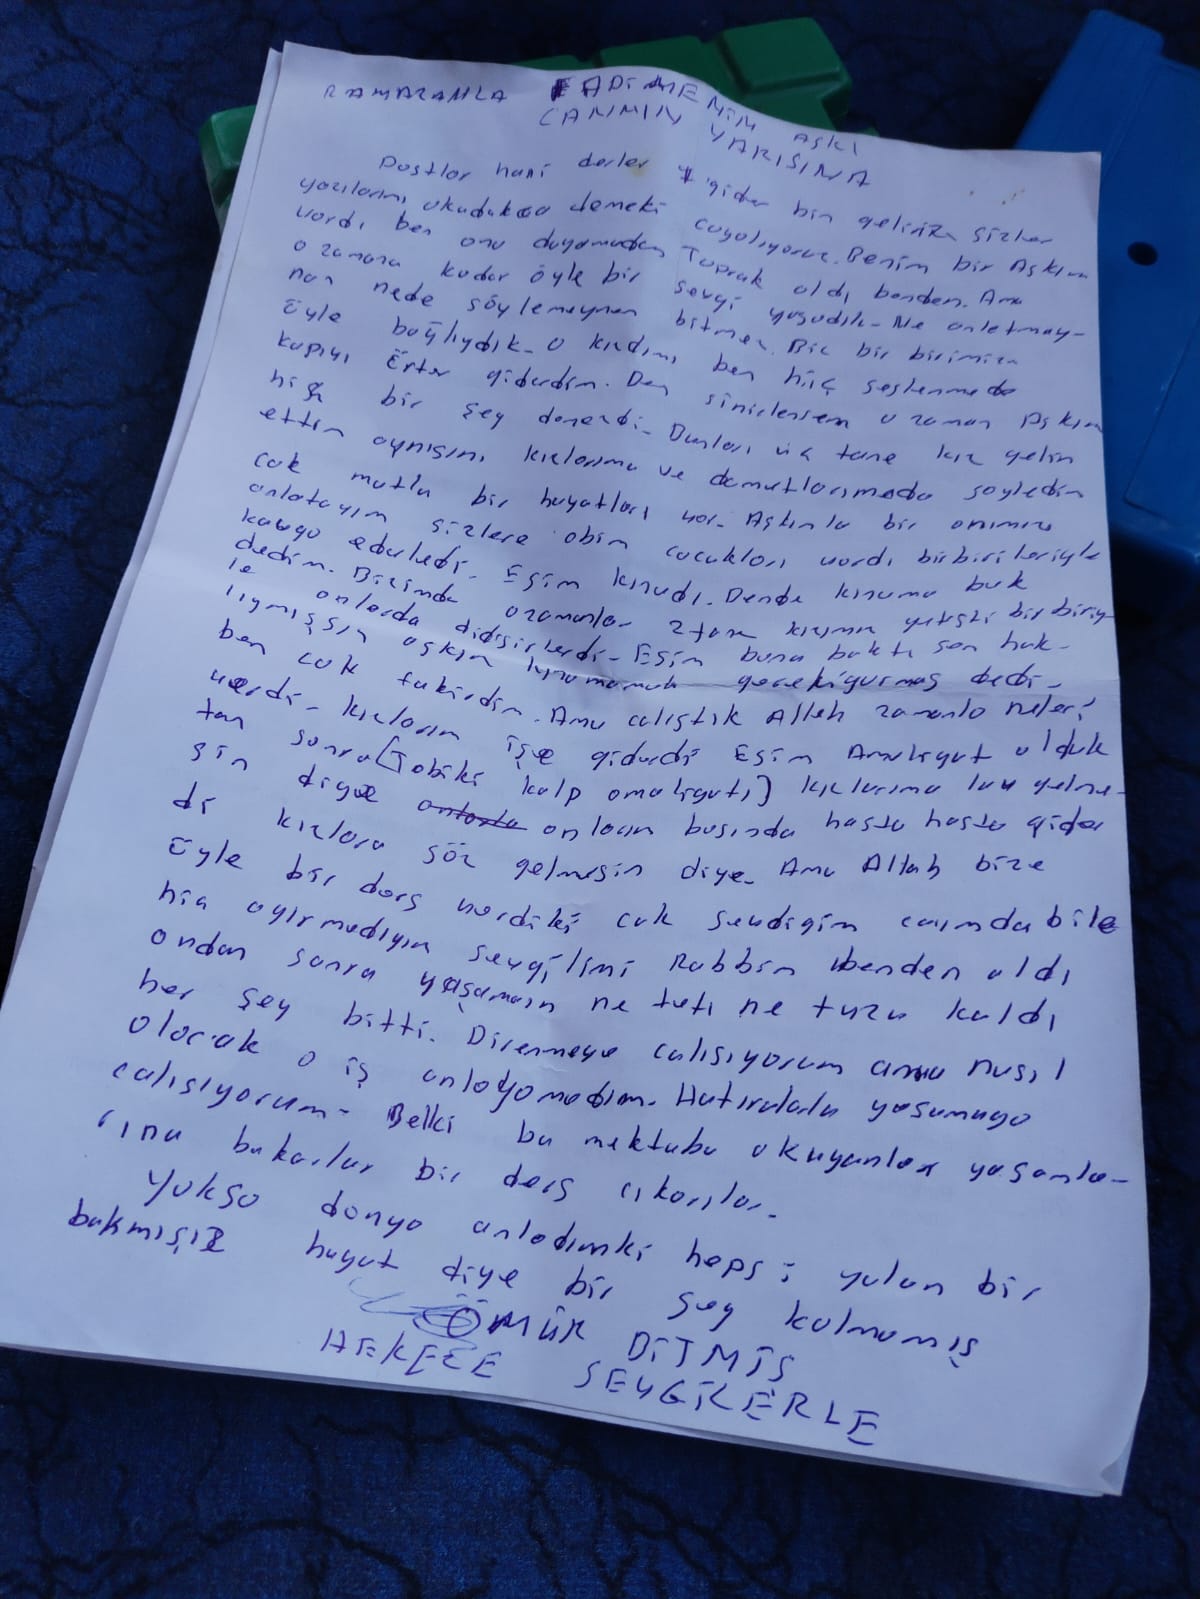 RAMAZANLA FADİMENİM AŞKI
CANIMIN YARISINA
Dostlar hani derler gider bin gelirizn sizler
yazılarımı okudukca demeki cogalıyoruz. Benim bir Aşkım
vardı ben onu duyamadan Toprak aldı benden. Ama
o zamana kadar öyle bir sevgi yaşadık- Ne anlatmay-
nan nede söylemeynen bitmez. Biz bir birimize
Öyle bağlıydık- o kızdımı ben hiç seslenmede
kapıyı Örter giderdim. Den sinirlensem o zaman Aşkım
hiç bir şey demezdi- Bunları üç tane kız gelin
ettim aynısını kızlarıma ve damatlarımada söyledim
cok mutlu bir hayatları var. Aşkımla bir anımızı
anlatayım sizlere abim cocukları vardı birbirileriyle
kavga ederledi- Eşim kızudı. Dende kızuma buk
dedim. Bizimde ozamanlar 2 tane kızımız yetişti bir biriy-
le onlarda didişirlerdi- Eşim buna baktı son hak-
lıymışsın aşkım kızmamak gerekiyurmuş dedi-
ben cok fakirdim. Ama calıştık Allah zamanla neleri
verdi- kızlarım işe giderdi Eşim Amaliyat olduk
tan sonra (Tabiki kalp amaliyatı) kızlarıma lav gelme-
sin diye onların başında hasta hasta gider
di kızlara söz gelmesin diye- Ama Allah bize
Öyle bir ders verdiki cok sevdigim canımdabile
hiç ayırmadıyım sevgilimi Rabbim benden aldı
ondan sonra yaşamaın ne tatı ne tuzu kaldı
her şey bitti. Direnmeye calışıyorum ama nasıl
olacak o iş anlayamadım. Hatıralala yaşamaya
calışıyorum- Belki bu mektubu okuyanlar yaşanla-
ına bakarlar bir ders cıkarılar.
Yoksa dönya anladımki hepsi yalan bir
bakmışız hayat diye bir şey kalmamış
ÖMÜR BİTMİŞ
HERKEZE SEVGİLERLE